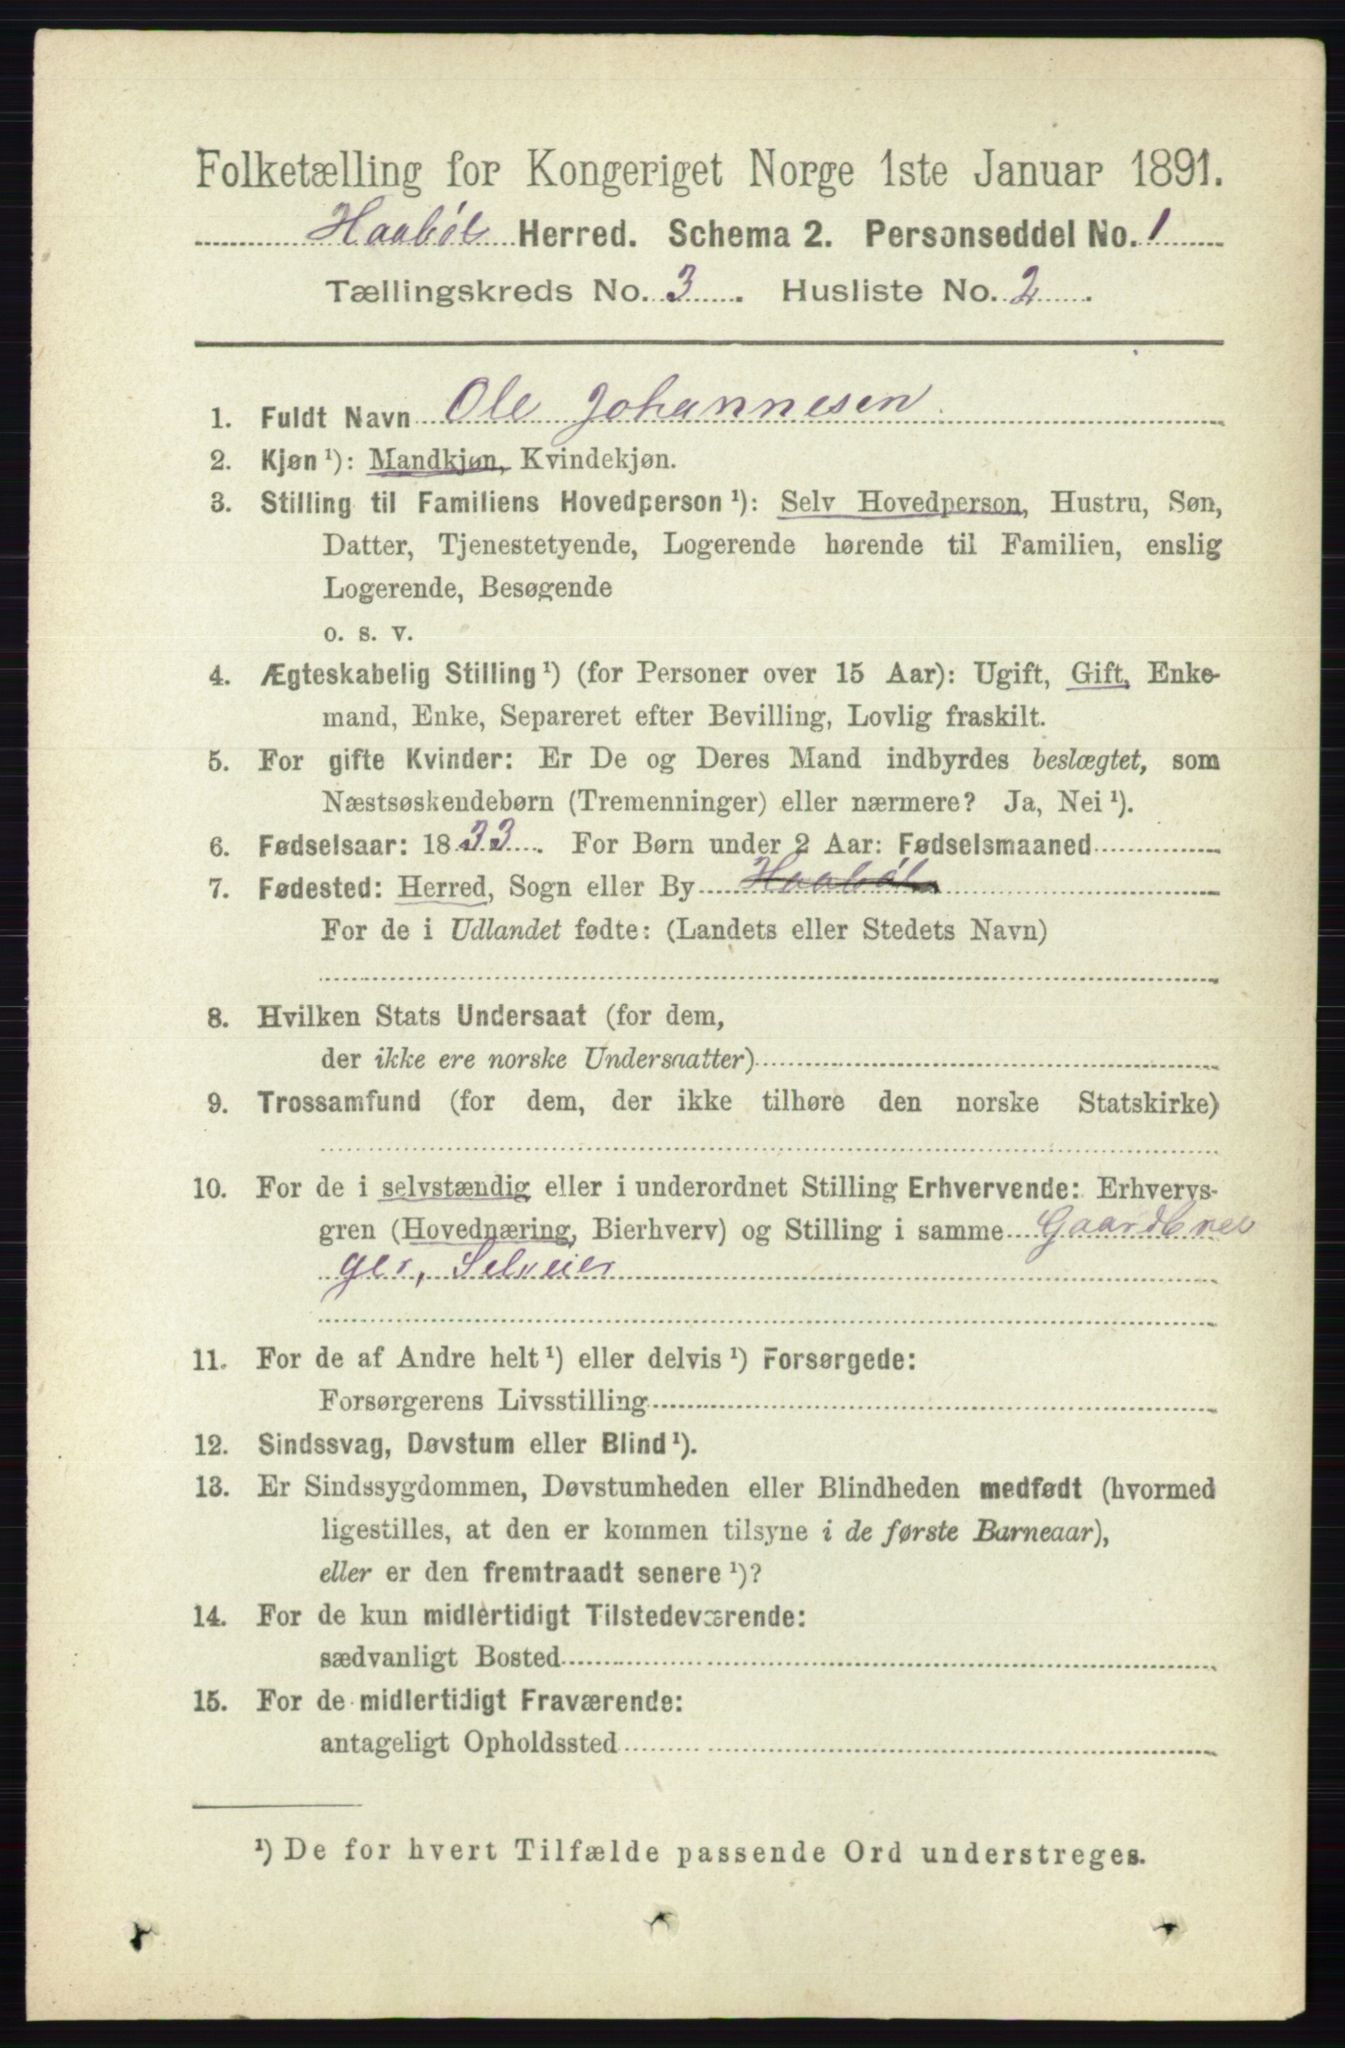 Folketælling for Kongeriget Norge 1ste Januar 1891.
Haabøl Herred. Schema 2. Personseddel No. 1
Tællingskreds No. 3. Husliste No. 2.
1. Fuldt Navn Ole Johannesen.
2. Kjøn¹): Mandkjøn, Kvindekjøn.
3. Stilling til Familiens Hovedperson¹): Selv Hovedperson, Hustru, Søn,
Datter, Tjenestetyende, Logerende hørende til Familien, enslig
Logerende, Besøgende
o. s. v.
4. Ægteskabelig Stilling¹) (for Personer over 15 Aar): Ugift, Gift, Enke-
mand, Enke, Separeret efter Bevilling, Lovlig fraskilt.
5. For gifte Kvinder: Er De og Deres Mand indbyrdes beslægtet, som
Næstsøskendebørn (Tremenninger) eller nærmere? Ja, Nei¹).
6. Fødselsaar: 1833. For Børn under 2 Aar: Fødselsmaaned
7. Fødested: Herred, Sogn eller By Haabøl
For de i Udlandet fødte: (Landets eller Stedets Navn)
8. Hvilken Stats Undersaat (for dem,
der ikke ere norske Undersaatter)
9. Trossamfund (for dem, der ikke tilhøre den norske Statskirke)
10. For de i selvstændig eller i underordnet Stilling Erhvervende: Erhvervs-
gren (Hovednæring, Bierhverv) og Stilling i samme Gaardbru
ger, Selveier
11. For de af Andre helt¹) eller delvis¹) Forsørgede:
Forsørgerens Livsstilling
12. Sindssvag, Døvstum eller Blind¹).
13. Er Sindssygdommen, Døvstumheden eller Blindheden medfødt (hvormed
ligestilles, at den er kommen tilsyne i de første Barneaar),
eller er den fremtraadt senere¹)?
14. For de kun midlertidigt Tilstedeværende:
sædvanligt Bosted
15. For de midlertidigt Fraværende:
antageligt Opholdssted
¹) De for hvert Tilfælde passende Ord understreges.